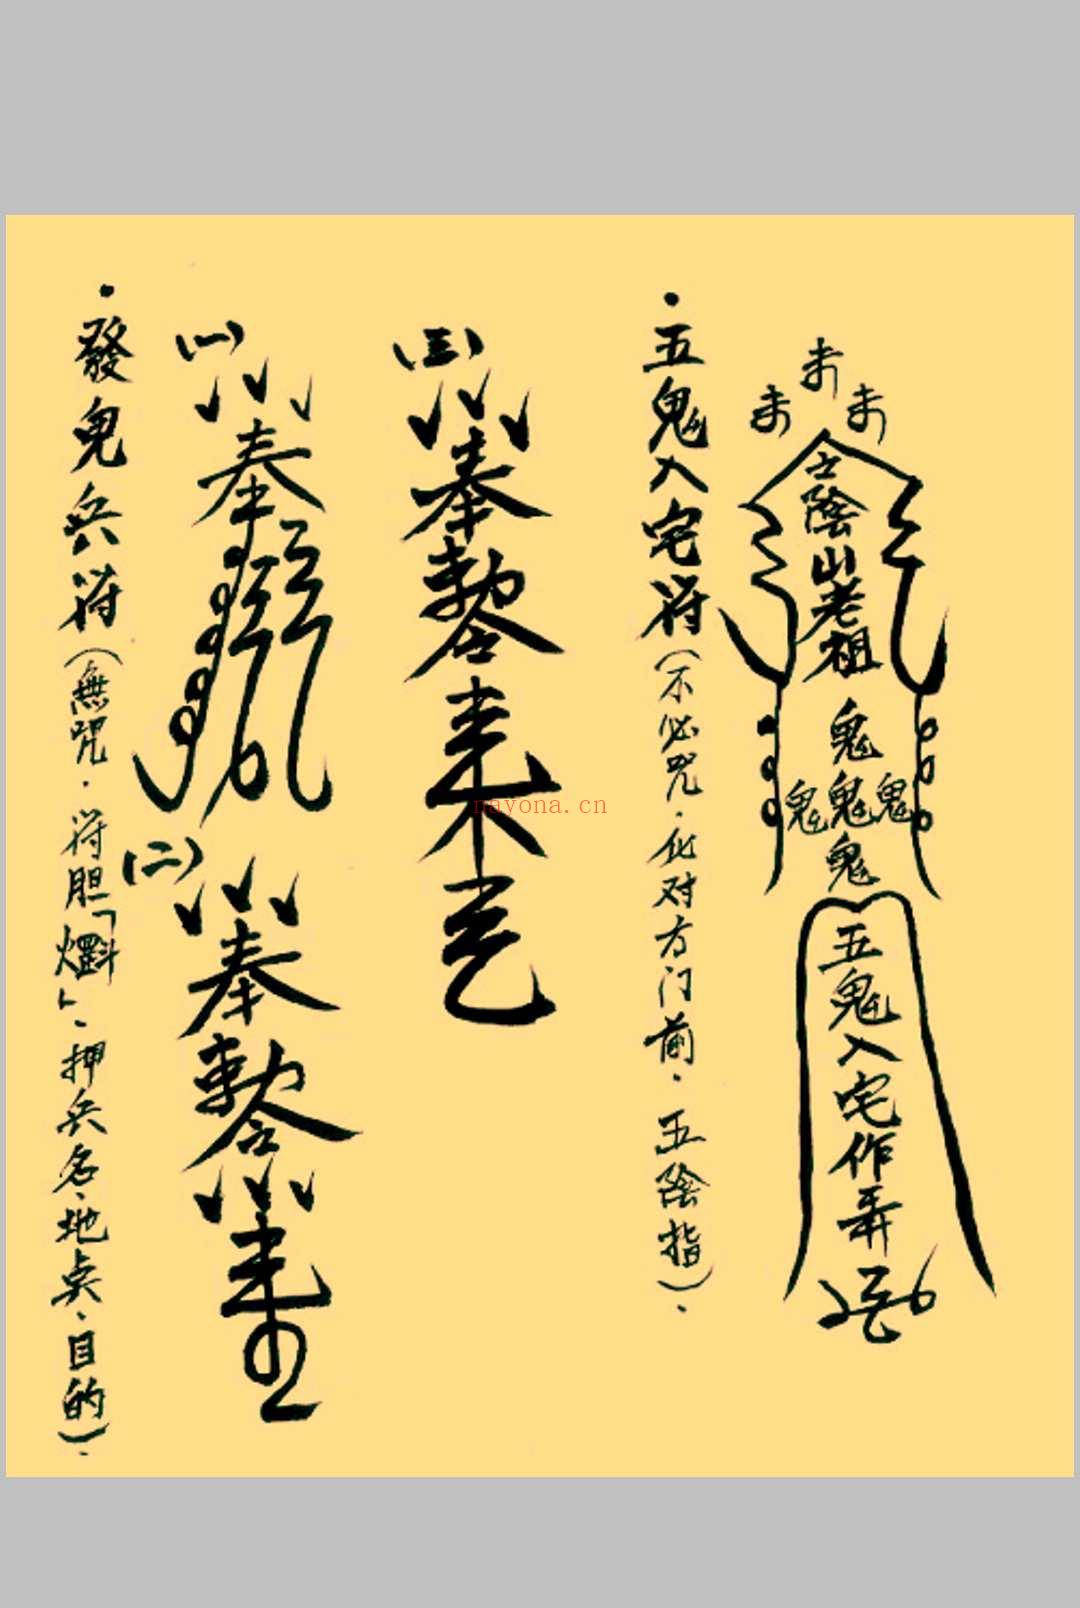 陰山老祖
鬼
鬼鬼鬼
鬼
五鬼入宅作弄
·五鬼入宅符(不必咒·化对方门前·五陰指)·
(三)
奉
勅令
(一)
奉
(二)
奉
勅令
·發鬼兵符(無咒·符胆「」、押兵名、地点、目的)·
nayona.cn